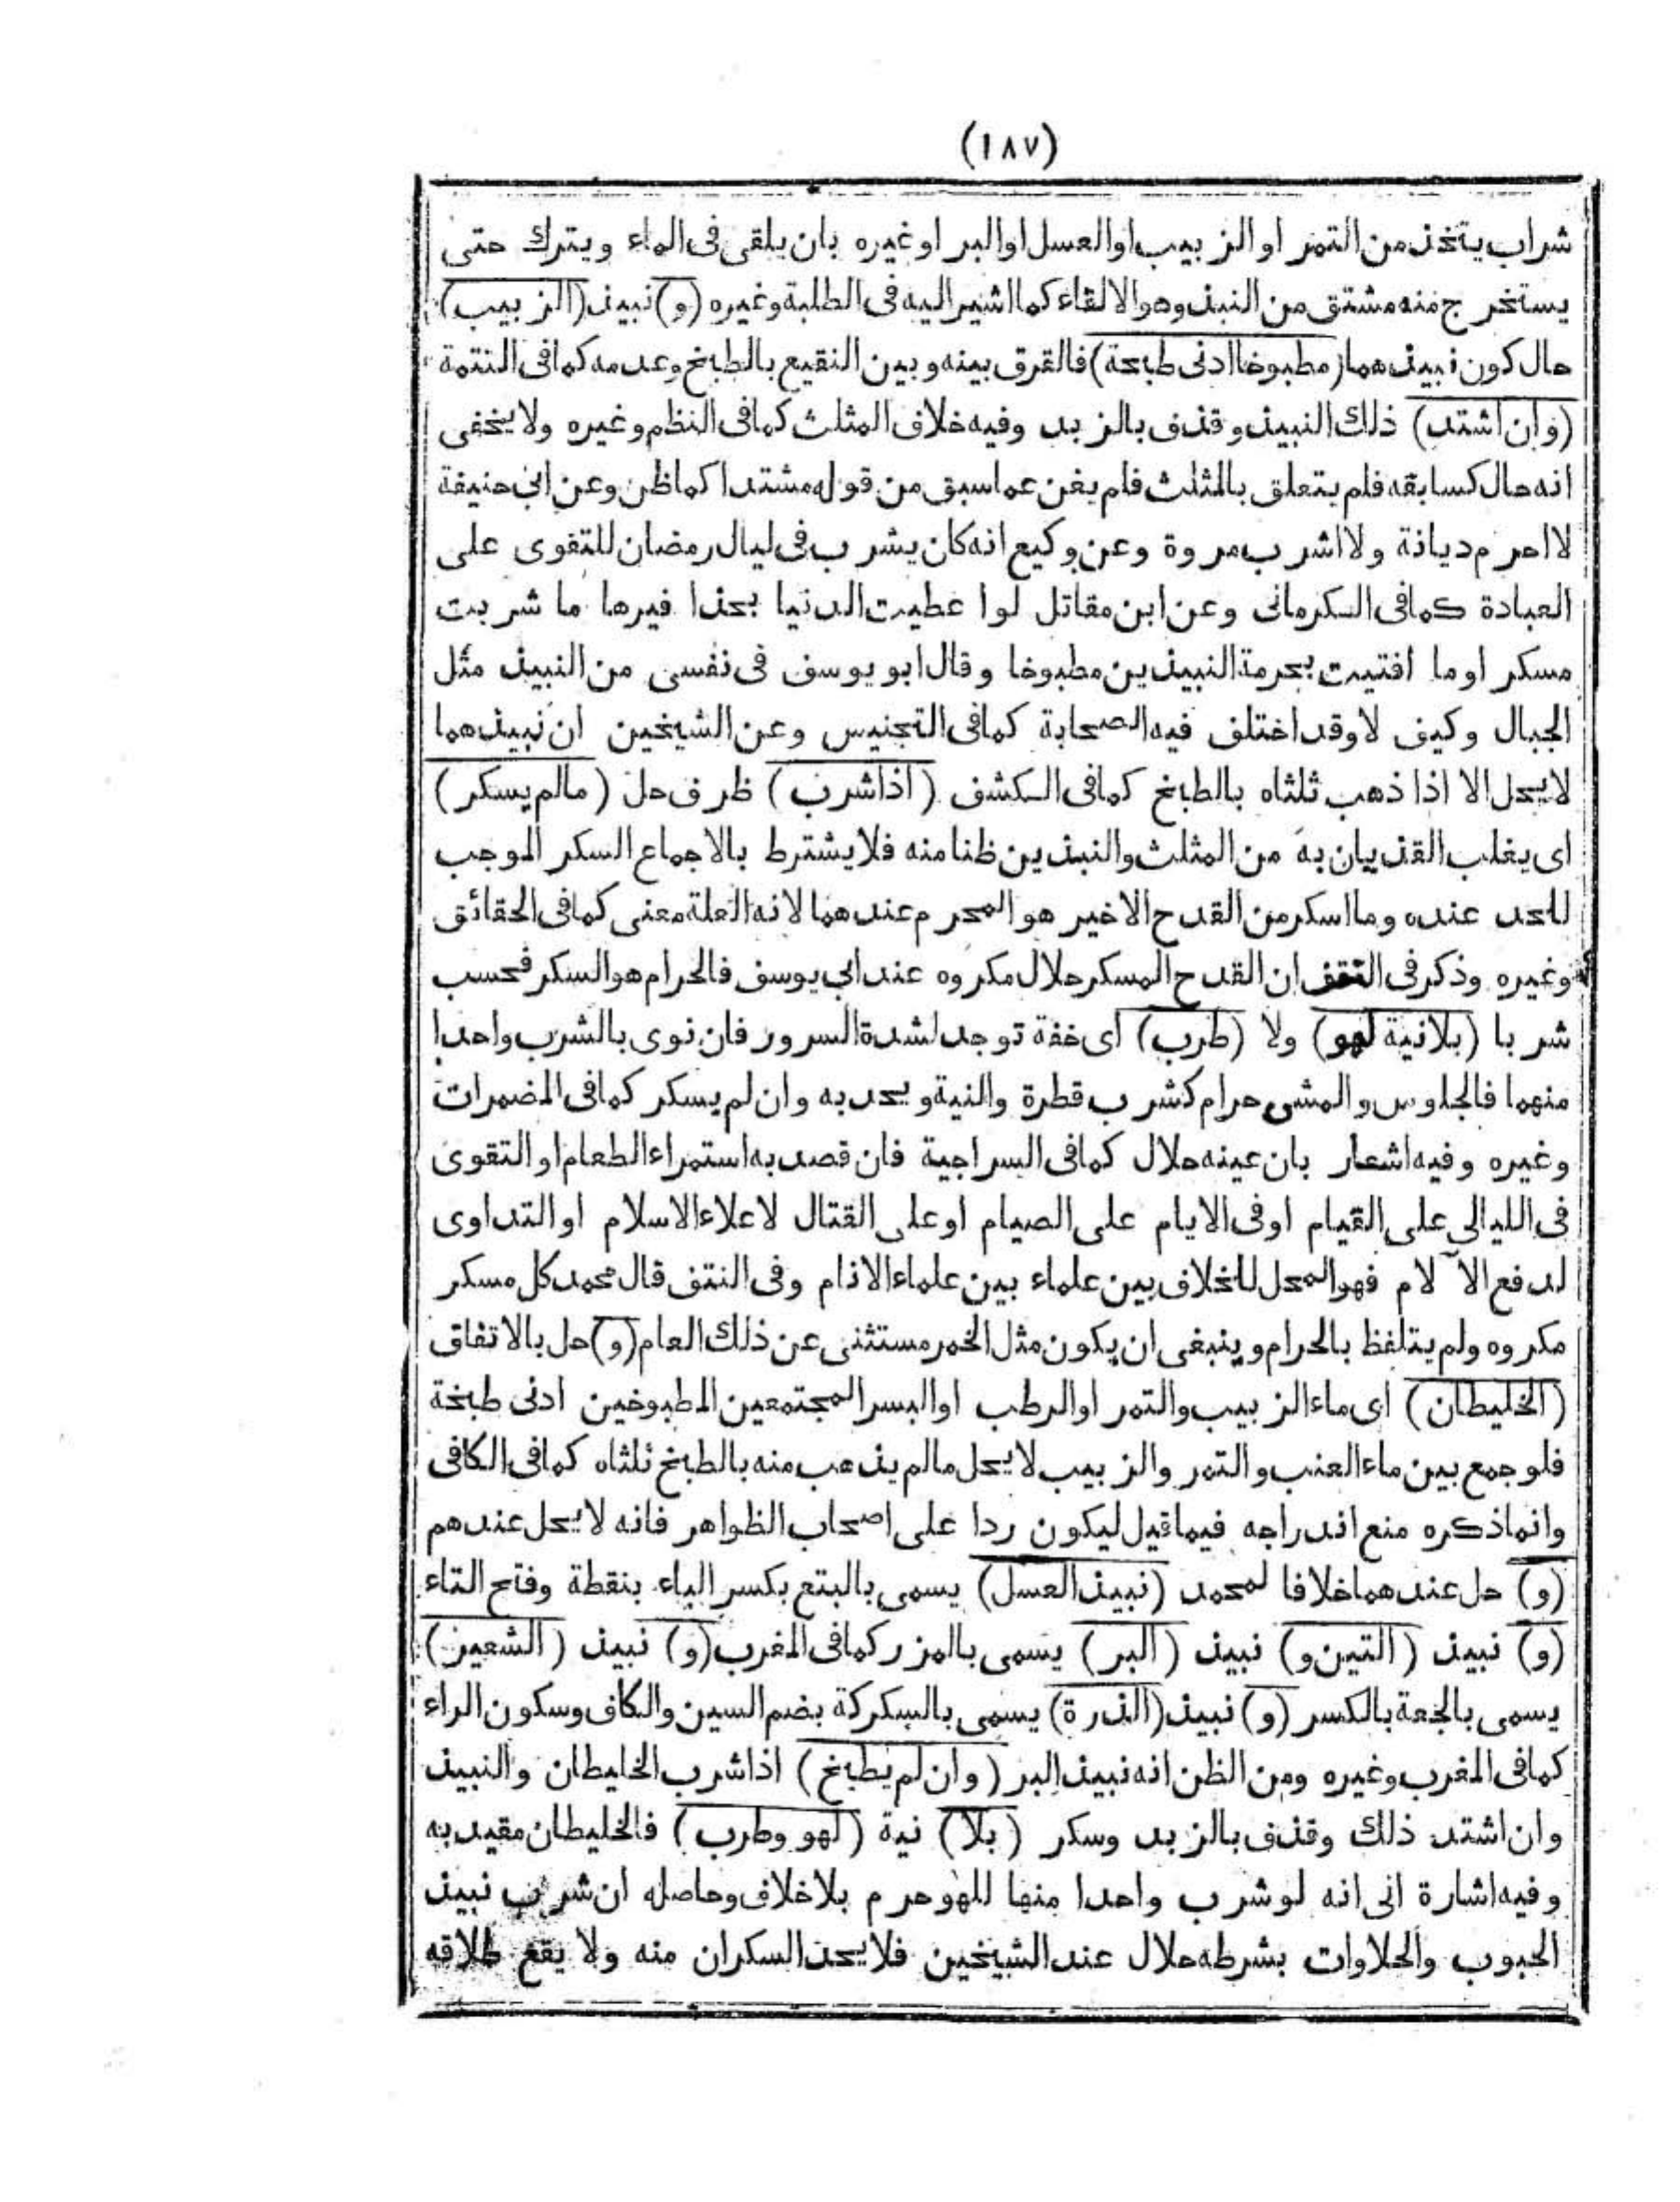 (١٨٧)
شراب يتخذ من التمر او الزبيب او العسل او البر او غيره بان يلقى فى الماء ويترك حتى
يستخرج منه مشتق من النبذ وهو الالقاء كما اشير اليه فى الطلبة وغيره (و) نبيذ (الزبيب)
حال كون نبيذهما (مطبوخا ادنى طبخة) فالفرق بينه وبين النقيع بالطبخ وعدمه كما فى النتمة
(وان اشتد) ذلك النبيذ وقذف بالزبد وفيه خلاف المثلث كما فى النظم وغيره ولا يخفى
انه حال كسابقه فلم يتعلق بالمثلث فلم يغن عما سبق من قوله مشتدا كما ظن وعن ابى حنيفة
لا احرم ديانة ولا اشرب مروة وعن وكيع انه كان يشرب فى ليال رمضان للتقوى على
العبادة كما فى الكرمانى وعن ابن مقاتل لو اعطيت الدنيا بحذا فيرها ما شربت
مسكر او ما افتيت بحرمة النبيذين مطبوخا وقال ابو يوسف فى نفسى من النبيذ مثل
الجبال وكيف لا وقد اختلف فيه الصحابة كما فى التجنيس وعن الشيخين ان نبيذهما
لا يحل الا اذا ذهب ثلثاه بالطبخ كما فى الكشف (اذا شرب) ظرف حل (مالم يسكر)
اى يغلب الهذيان به من المثلث والنبيذين ظنا منه فلا يشترط بالاجماع السكر الموجب
للحد عنده وما اسكر من القدح الاخير هو المحرم عندهما لانه العلة معنى كما فى الحقائق
وغيره وذكر فى النتف ان القدح المسكر حلال مكروه عند ابى يوسف فالحرام هو السكر فحسب
شربا (بلانية لهو) ولا (طرب) اى خفة توجد لشدة السرور فان نوى بالشرب واحدا
منهما فالجلوس والمشى حرام كشرب قطرة والنية ويحد به وان لم يسكر كما فى المضمرات
وغيره وفيه اشعار بان عينه حلال كما فى السراجية فان قصد به استمراء الطعام او التقوى
فى الليالى على القيام او فى الايام على الصيام او على القتال لاعلاء الاسلام او التداوى
لدفع الآلام فهو المحل للخلاف بين علماء بين علماء الانام وفى النتف قال محمد كل مسكر
مكروه ولم يتلفظ بالحرام وينبغى ان يكون مثل الخمر مستثنى عن ذلك العام (و) حل بالاتفاق
(الخليطان) اى ماء الزبيب والتمر او الرطب او البسر المجتمعين المطبوخين ادنى طبخة
فلو جمع بين ماء العنب والتمر والزبيب لا يحل مالم يذهب منه بالطبخ ثلثاه كما فى الكافى
وانما ذكره منع اندراجه فيما قيل ليكون ردا على اصحاب الظواهر فانه لا يحل عندهم
(و) حل عندهما خلافا لمحمد (نبيذ العسل) يسمى بالبتع بكسر الباء بنقطة وفتح التاء
(و) نبيذ (التين و) نبيذ (البر) يسمى بالمزر كما فى المغرب (و) نبيذ (الشعير)
يسمى بالجعة بالكسر (و) نبيذ (الذرة) يسمى بالسكركة بضم السين والكاف وسكون الراء
كما فى المغرب وغيره ومن الظن انه نبيذ البر (وان لم يطبخ) اذا شرب الخليطان والنبيذ
وان اشتد ذلك وقذف بالزبد وسكر (بلا) نية (لهو وطرب) فالخليطان مقيد به
وفيه اشارة الى انه لو شرب واحدا منها للهو حرم بلاخلاف وحاصله ان شرب نبيذ
الحبوب والحلاوات بشرطه حلال عند الشيخين فلا يحد السكران منه ولا يقع طلاقه